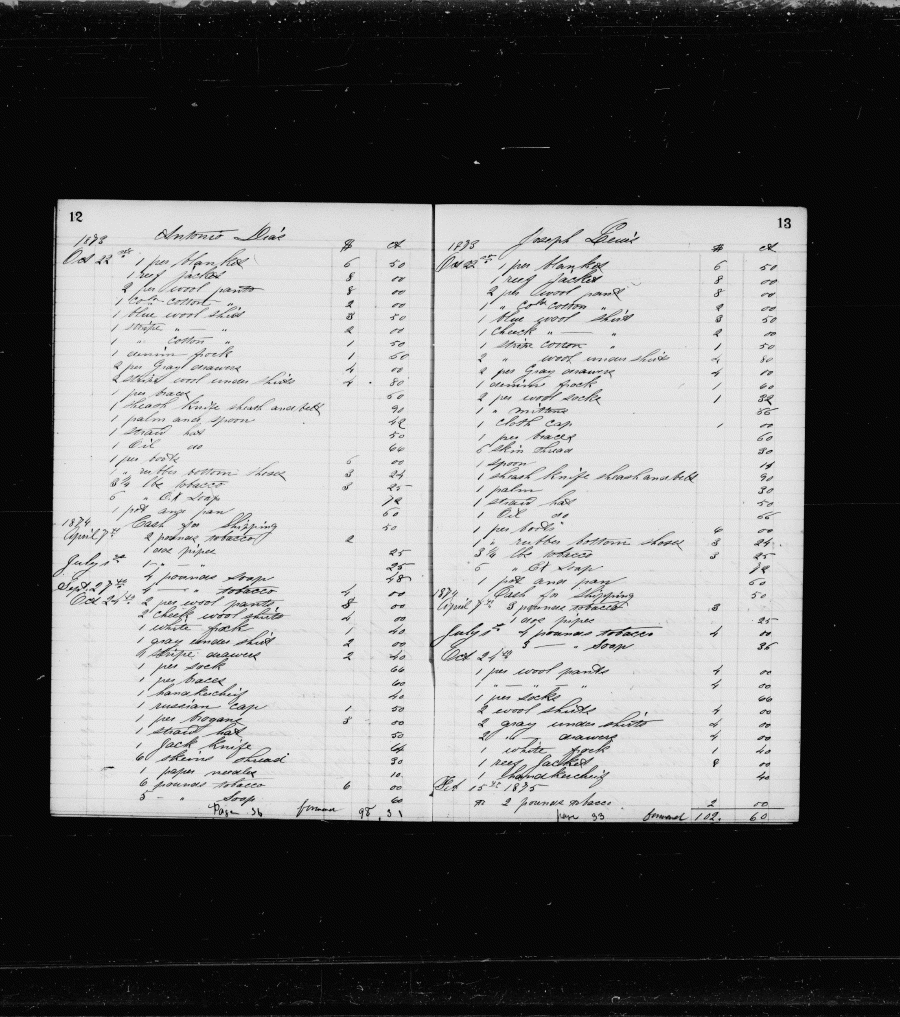 12
Antonio Dias
1873 $ ct
Oct 22nd 1 per blankes 6 50
1 reef Jacket 8 00
2 per wool pants 8 00
1 Cotton " 2 00
1 blue wool shirt 3 50
1 stripe " — " 2 00
1 " cotton " 1 50
1 denim frock 1 60
2 per Gray drawers 4 00
2 stripe wool under shirts 4 80
1 per braces 60
1 sheath knife sheath and belt 90
1 palm and spoon 42
1 straw hat 50
1 Oil do 66
1 per boots 6 00
1 " rubber bottom shoes 3 24
3 1/4 lbs tobacco 3 25
6 " O.K soap 72
1 pot and pan 60
1874 Cash for Shipping 50
April 7th 2 pounds tobacco 2
1 doz pipes 25
July 1st 1 " — " 25
4 pounds soap 48
Sept 27th 4 — " tobacco 4 00
Oct 24th 2 per wool pants 8 00
2 check wool shirts 4 00
1 white frock 1 40
1 gray under shirt 2 00
4 stripe drawers 2 40
1 per sock 66
1 per braces 60
1 handkerchief 40
1 russian cap 1 50
1 per brogans 3 00
1 straw hat 50
1 Jack knife 64
6 skeins thread 30
1 paper needles 10
6 pounds tobacco 6 00
5 — " soap 60
Page 36 forward 98.31
13
Joseph Lewis
1873 $ ct
Oct 22nd 1 per blankes 6 50
1 reef Jacket 8 00
2 per wool pants 8 00
1 " Cotton " 2 00
1 blue wool shirt 3 50
1 check " — " 2 00
1 stripe cotton " 1 50
2 " wool under shirts 4 80
2 per Gray drawers 4 00
1 denim frock 1 60
2 per wool socks 1 32
1 " mittens
1 cloth cap 1 00
1 per braces 60
6 skin thread 30
1 spoon 14
1 sheath knife sheath and belt 90
1 palm 30
1 straw hat 50
1 Oil do 66
1 per boots 6 00
1 " rubber bottom shoes 3 24
3 1/4 lbs tobacco 3 25
6 " OK soap 72
1 pot and pan 60
1874 Cash for shipping 50
April 7th 3 pounds tobacco 3
1 doz pipes 25
July 1st 4 pounds tobacco 4 00
3 — " soap 36
Oct 24th
1 per wool pants 4 00
1 " — " — " 4 00
1 per socks 66
2 wool shirts 4 00
2 gray under shirts 4 00
2 " drawers 4 00
1 white frock 1 40
1 reef Jacket 8 00
1 handkerchief 40
Feb 15th 1875
2 pounds tobacco 2 00
page 33 forward 102. 60